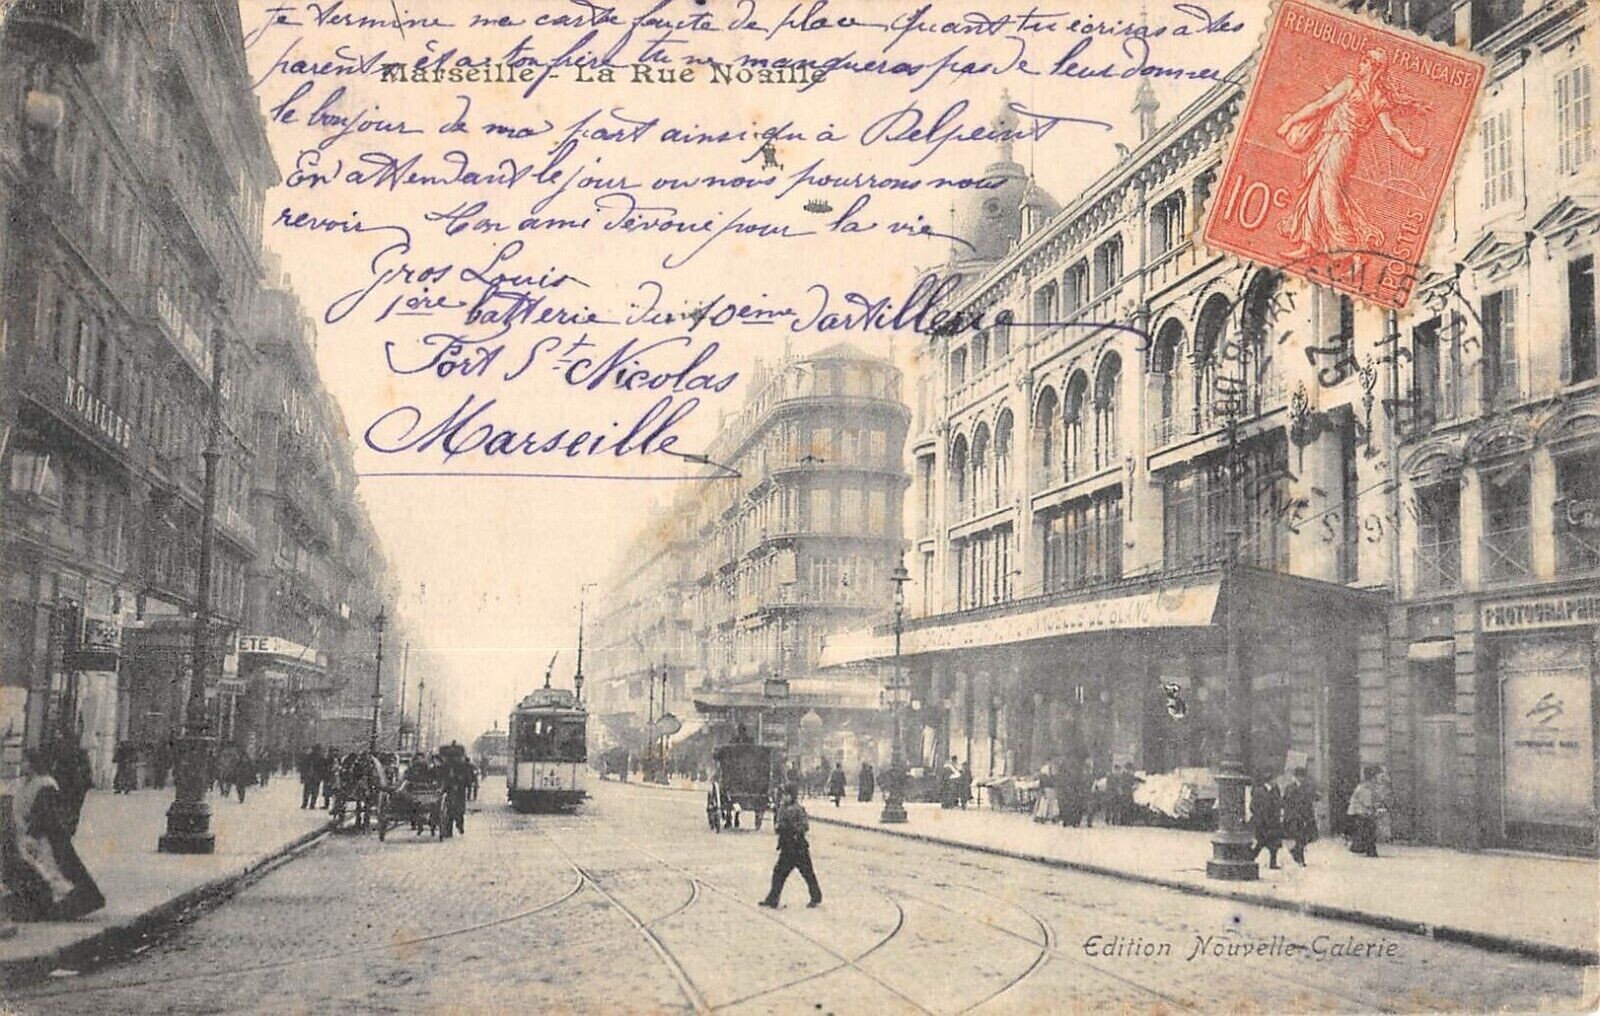 Je termine ma carte faute de place quant tu écriras a tes
parents et a ton frère tu ne manqueras pas de leur donner
Marseille - La Rue Noaille
le bonjour de ma part ainsi qu à Delpeint
En attendant le jour ou nous pourrons nous
revoir Ton ami dévoué pour la vie
Gros Louis
1ère batterie du 10ème d'artillerie
Fort St Nicolas
Marseille
REPUBLIQUE FRANÇAISE
10c
POSTES
25
NOAILLES
ETE
DE BLANC
PHOTOGRAPHIE
Edition Nouvelle Galerie